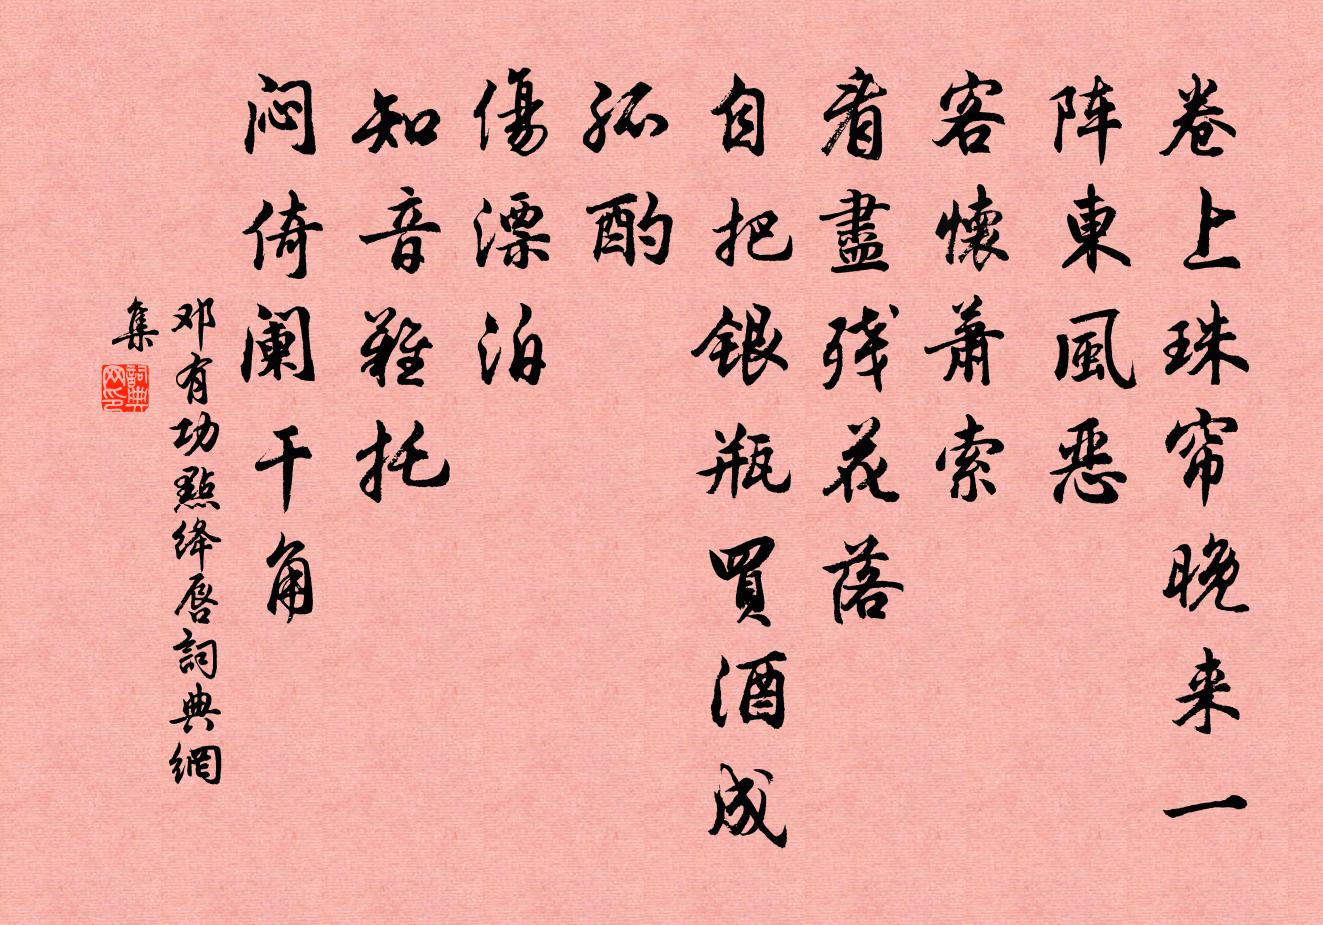 卷上珠帘晚来一
阵東風恶
客懷萧索
看盡残花落
自把銀瓶買酒成
孤酌
傷漂泊
知音難托
闷倚阑干角
邓有功點绛唇詞典網
集
詞典網印